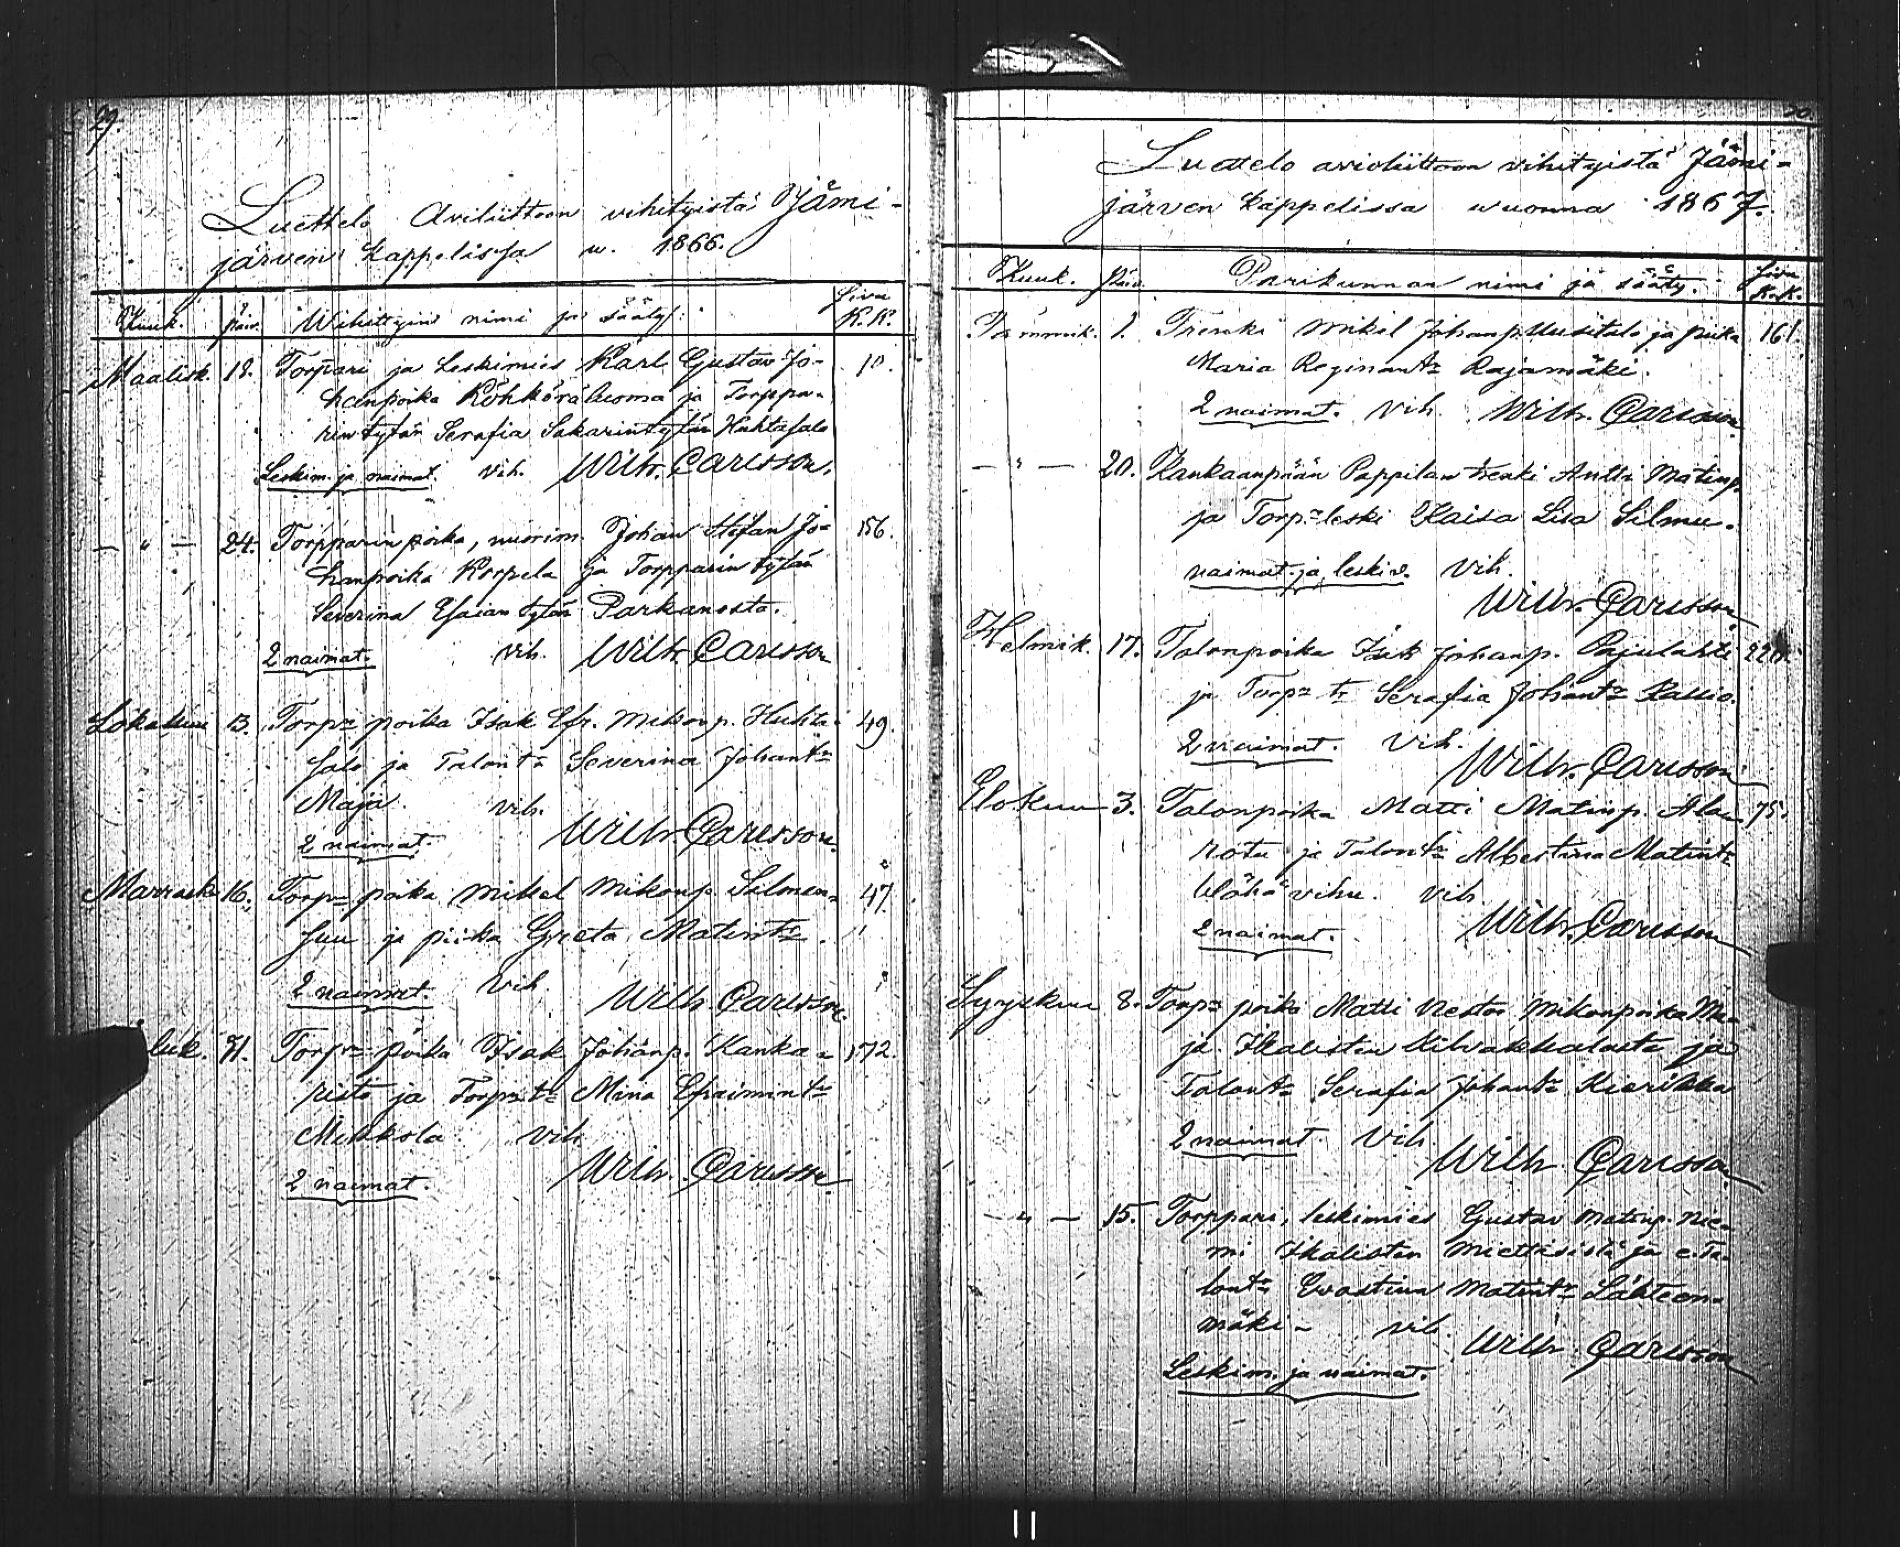 29.
Luettelo Aviliittoon vihityistä Jämi-
järven kappelissa w. 1866.
Kuuk. Päiv. Wihittyin nimi ja sääty. Sivu K.K.
Maalisk. 18. Torpari ja Leskimies Karl Gustav Jo- 10.
hanpoika Köhköräluoma ja Torppa-
rin tytär Serafia Sakarintytär Huhtasalo
Leskim. ja naimat. vih. Wilh. Carlsson.
— " — 24. Torpparin poika, nuorim. Johan Stefan Jo- 156.
hanpoika Korpela ja Torpparin tytär
Severina Esaian tytär Parkanosta.
2 naimat. vih. Wilh. Carlsson
Lokakuu 13. Torpn poika Isak Efr. Mikonp. Huhta- 49.
salo ja Talont. Severina Johantr
Maja vih.
2 naimat. Wilh. Carlsson.
Marrask. 16. Torpn poika Mikel Mikonp. Salmen- 47.
suu ja piika Greta Matintr.
2 naimat. Vih. Wilh. Carlsson.
luk. 31. Torpn poika Isak Johanp. Kanka- 172.
risto ja Torpn tr Mina Efraimintr
Mikkola vih.
2 naimat. Wilh. Carlsson.
30.
Luettelo avioliittoon vihityistä Jämi-
järven kappelissa wuonna 1867.
Kuuk. Päiv. Parikunnan nimi ja sääty. Sivu K.K.
Tammik. 1. Trenki Mikel Johanp. Uusitalo ja piika 161.
Maria Reginantr Rajamäki.
2 naimat. Vih. Wilh. Carlsson
— " — 20. Kankaanpään Pappilan trenki Antti Matinp.
ja Torpn leski Kaisa Lisa Silmu.
naimat. ja leskiv. Vih.
Wilh. Carlsson
Helmik. 17. Talonpoika Isak Johanp. Pajulahti 220.
ja Torpn tr Serafia Johantr Kallio.
2 naimat. Vih.
Wilh. Carlsson
Elokuu 3. Talonpoika Matti Matinp. Ala- 75.
rotu ja Talontr Albertina Matintr
Wähävihu. Vih.
2 naimat. Wilh. Carlsson
Syyskuu 8. Torpn poika Matti Nestor Mikonpoika Ma-
ja Ikalisten Kilvakkalasta ja
Talontr Serafia Johantr Kierikka
2 naimat. Vih.
Wilh. Carlsson
— " — 15. Torppari, leskimies Gustav Matinp. Nie-
mi Ikalisten Miettisistä ja e. Ta-
lontr Evastina Matintr Lähteen-
mäki - vih. Wilh. Carlsson
Leskim. ja naimat.
11